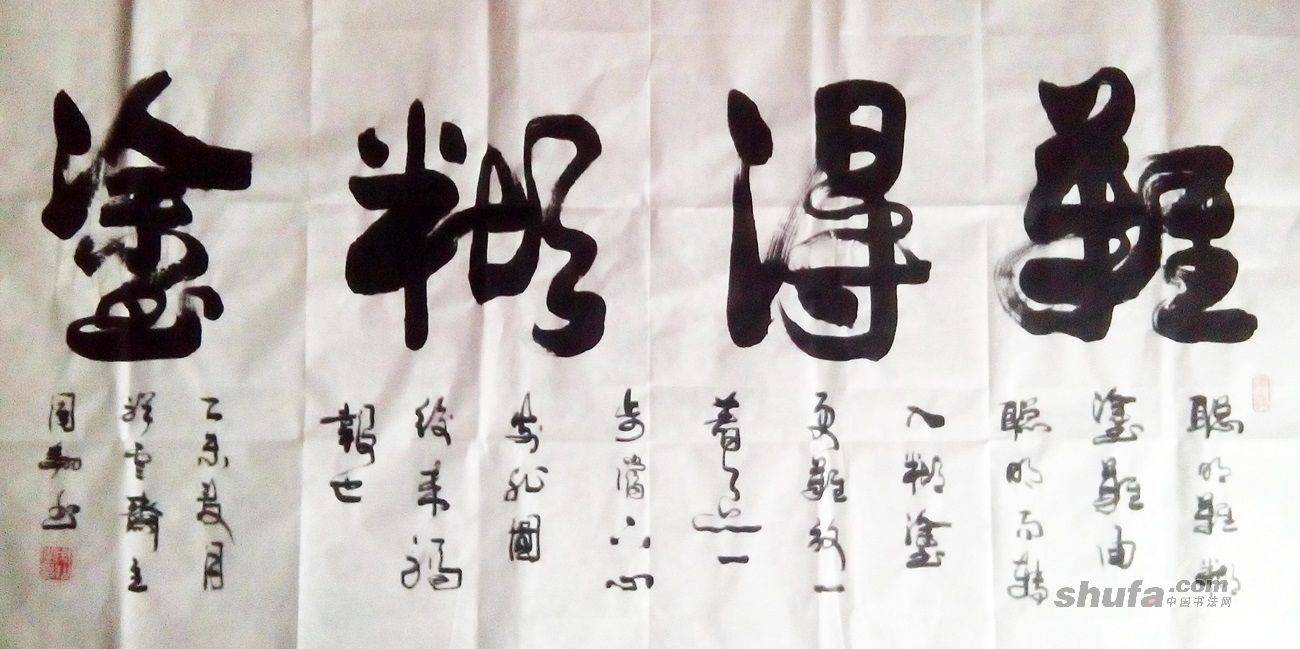 難得糊塗
聪明難糊
塗難由
聪明而转
入糊塗
更難放一
着退一
步當下心
安非圖
後来福
報也
乙未夏月
雪齋主
国书
shufa.com
中国书法网